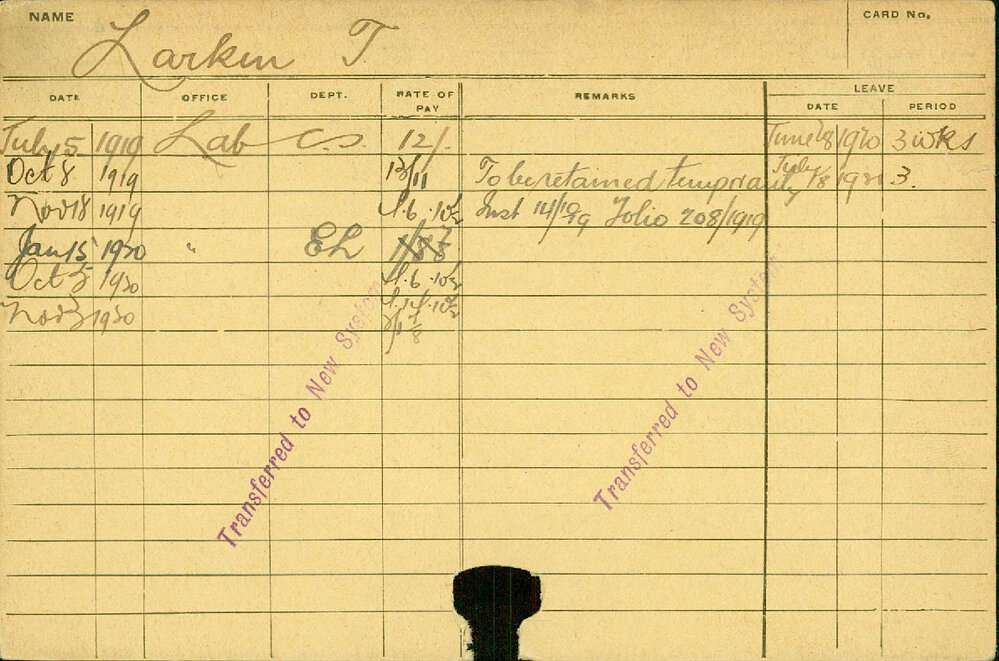 NAME Larkin T CARD No.
DATE OFFICE DEPT. RATE OF PAY REMARKS LEAVE
DATE PERIOD
July 5 1919 Lab C.S. 12/- June 28 1920 3 wks
Oct 8 1919 13/11 To be retained temporarily July 1/8 3.
Nov 18 1919 Inst 14/10/19 Folio 208/1919
Jan 15 1920 " EL
Oct 5 1920
Nov 3 1920
Transferred to New System
Transferred to New System